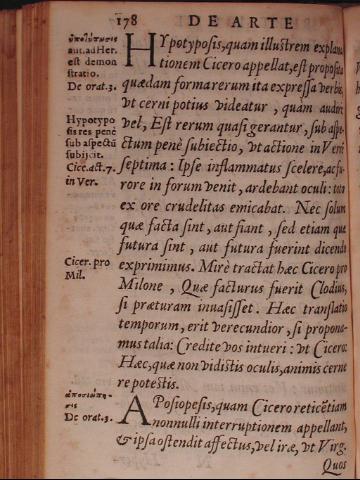 178 DE ARTE
ὑποτύπωσις
aut. ad Her.
est demon
stratio.
De orat. 3.
Hypotypo
sis res penè
sub aspectũ
subijcit.
Cic. act. 7.
in Ver.
Cicer. pro
Mil.
HYpotyposis, quam illustrem explana
tionem Cicero appellat, est proposita
quædam forma rerum ita expressa verbis,
vt cerni potius videatur, quam audiri.
vel, Est rerum quasi gerantur, sub aspe
ctum penè subiectio, vt actione in Verrē
septima: Ipse inflammatus scelere, ac fu-
rore in forum venit, ardebant oculi: toto
ex ore crudelitas emicabat. Nec solum
quæ facta sint, aut fiant, sed etiam quæ
futura sint, aut futura fuerint dicendo
exprimimus. Mirè tractat hæc Cicero pro
Milone, Quæ facturus fuerit Clodius,
si præturam inuasisset. Hæc translatio
temporum, erit verecundior, si propona-
mus talia: Credite vos intueri: vt Cicero:
Hæc, quæ non vidistis oculis, animis cerne
re potestis.
ἀποσιώπη-
σις
De orat. 3.
APosiopesis, quam Cicero reticētiam
nonnulli interruptionem appellant,
& ipsa ostendit affectus, vel iræ, vt Virg.
Quos